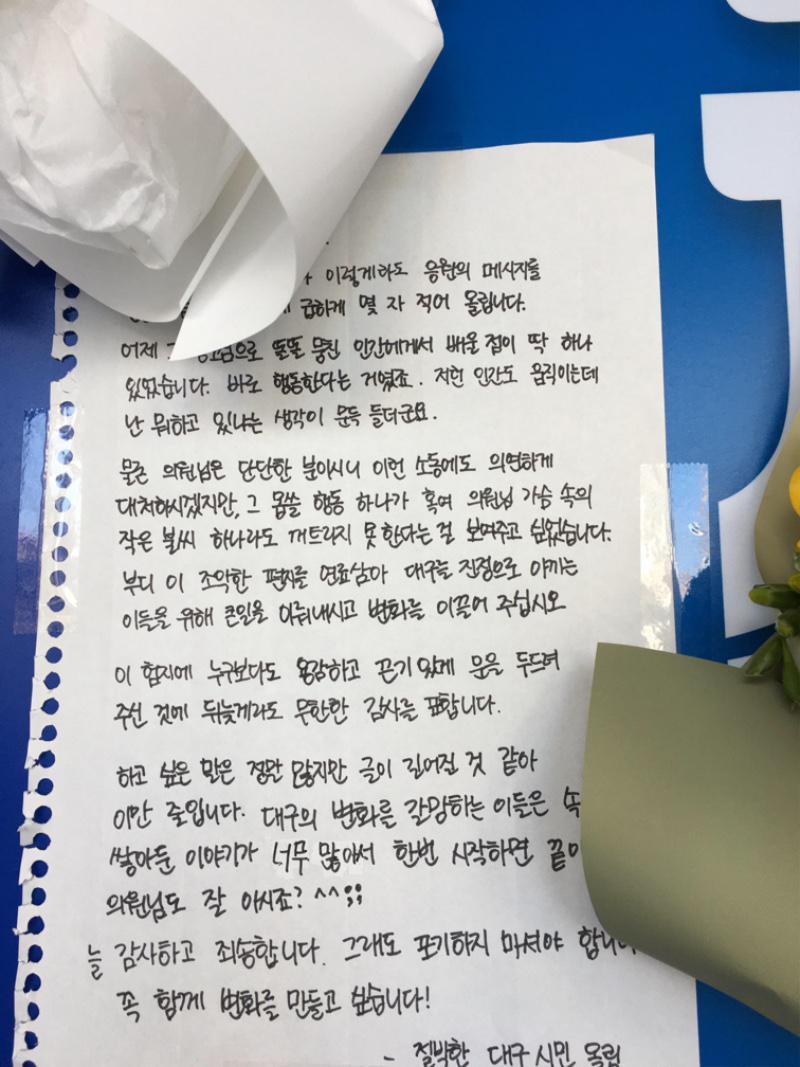 이렇게라도 응원의 메시지를
급하게 몇 자 적어 올립니다.
어제 똘똘 뭉친 인간에게서 배울 점이 딱 하나
있었습니다. 바로 행동한다는 거였죠. 저런 인간도 움직이는데
난 뭐하고 있나는 생각이 문득 들더군요.
물론 의원님은 단단한 분이시니 이런 소동에도 의연하게
대처하시겠지만, 그 몹쓸 행동 하나가 혹여 의원님 가슴 속의
작은 불씨 하나라도 꺼트리지 못 한다는 걸 보여주고 싶었습니다.
부디 이 조악한 편지를 연료삼아 대구를 진정으로 아끼는
이들을 위해 큰일을 이뤄내시고 변화를 이끌어 주십시오
이 험지에 누구보다도 용감하고 끈기 있게 문을 두드려
주신 것에 뒤늦게라도 무한한 감사를 표합니다.
하고 싶은 말은 정말 많지만 글이 길어질 것 같아
이만 줄입니다. 대구의 변화를 갈망하는 이들은 속
쌓아둔 이야기가 너무 많아서 한번 시작하면
의원님도 잘 아시죠? ^^;;
늘 감사하고 죄송합니다. 그래도 포기하지 마셔야 합니다
꼭 함께 변화를 만들고 싶습니다!
- 절박한 대구 시민 올림